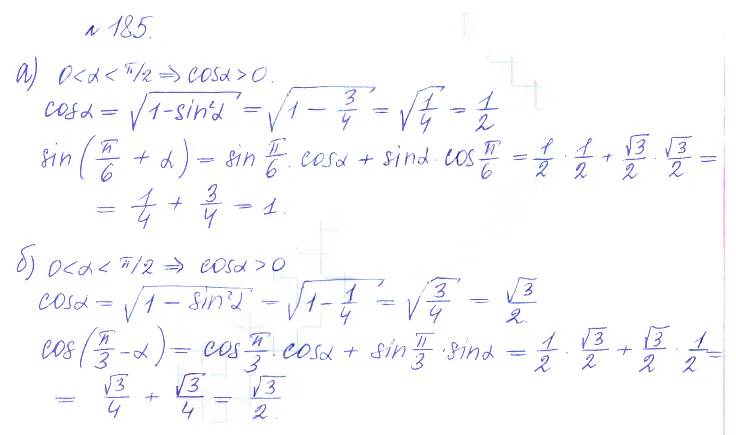 №185.
а) 0<α<π/2 ⇒ cosα>0.
cosα = √(1-sin²α) = √(1 - 3/4) = √(1/4) = 1/2
sin(π/6 + α) = sin π/6 · cosα + sinα · cos π/6 = 1/2 · 1/2 + √3/2 · √3/2 =
= 1/4 + 3/4 = 1.
б) 0<α<π/2 ⇒ cosα>0
cosα = √(1 - sin²α) = √(1 - 1/4) = √(3/4) = √3/2.
cos(π/3 - α) = cos π/3 · cosα + sin π/3 · sinα = 1/2 · √3/2 + √3/2 · 1/2 =
= √3/4 + √3/4 = √3/2.